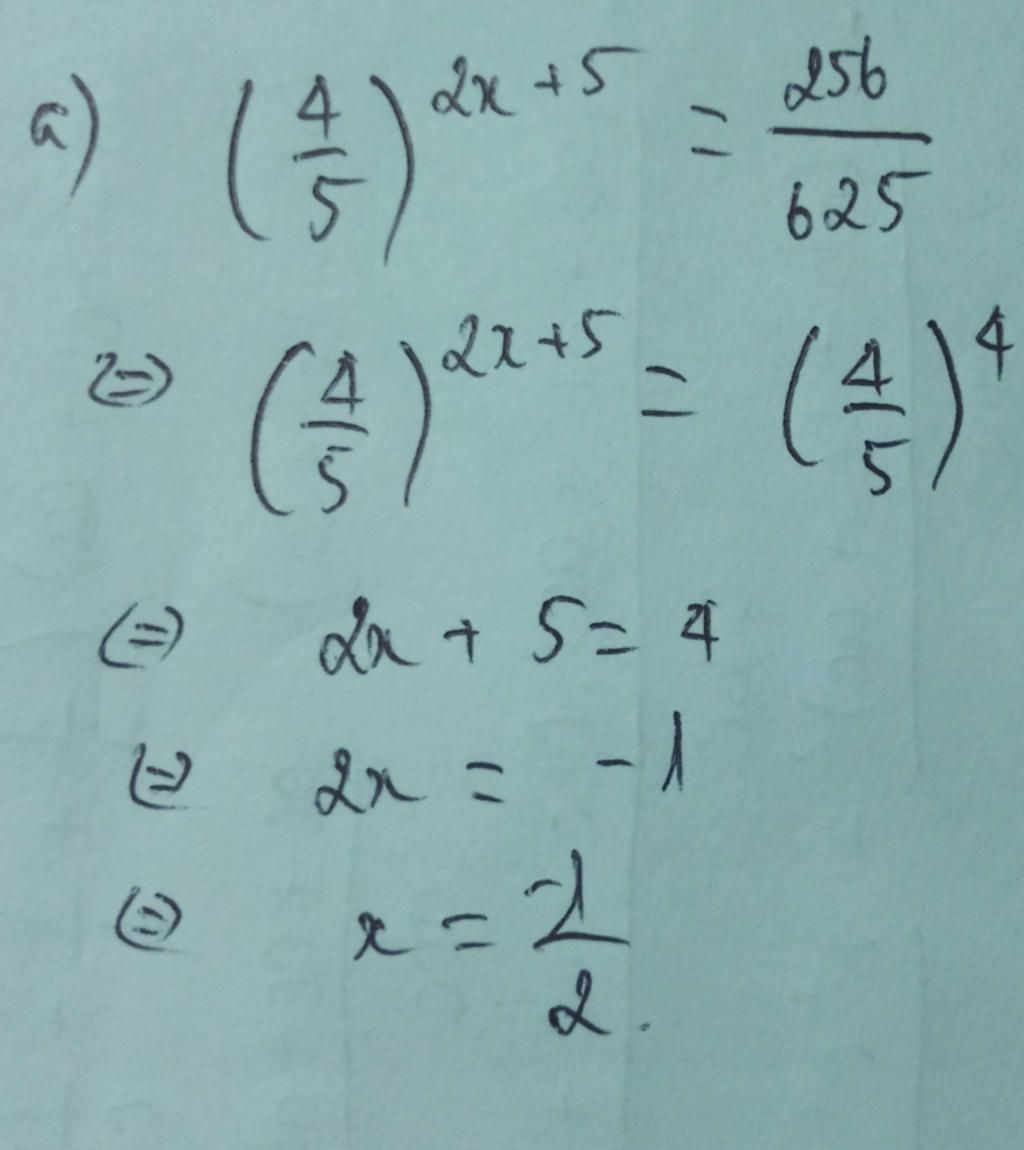 a) (4/5)^(2x+5) = 256/625
⇔ (4/5)^(2x+5) = (4/5)^4
⇔ 2x + 5 = 4
⇔ 2x = -1
⇔ x = -1/2.